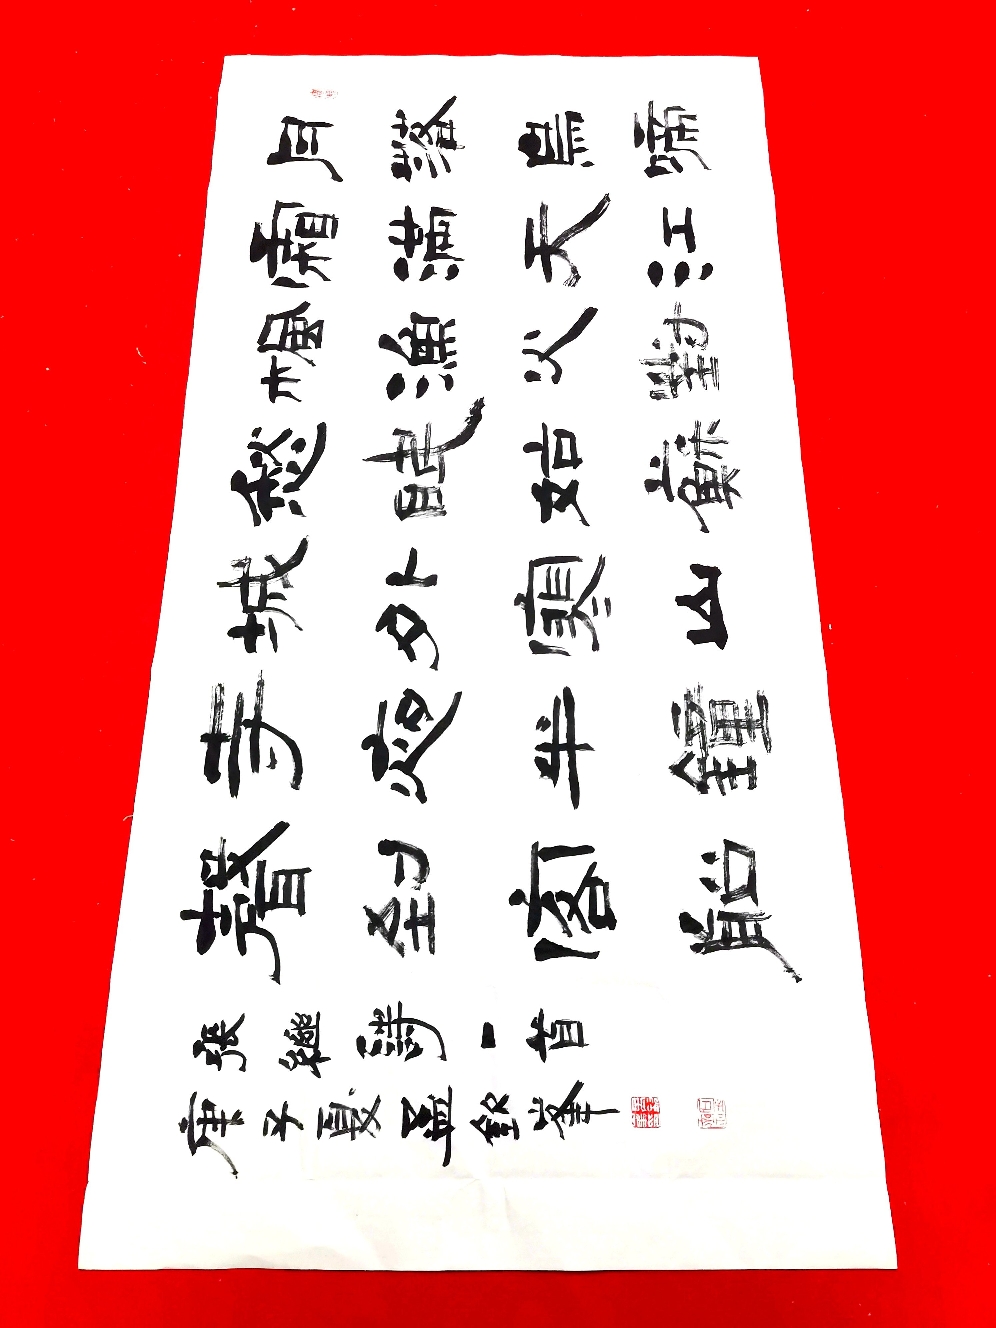 月落烏啼
霜滿天江
楓漁火對
愁眠姑蘇
城外寒山
寺夜半鐘
聲到客船
張繼詩一首
庚子夏孟峯